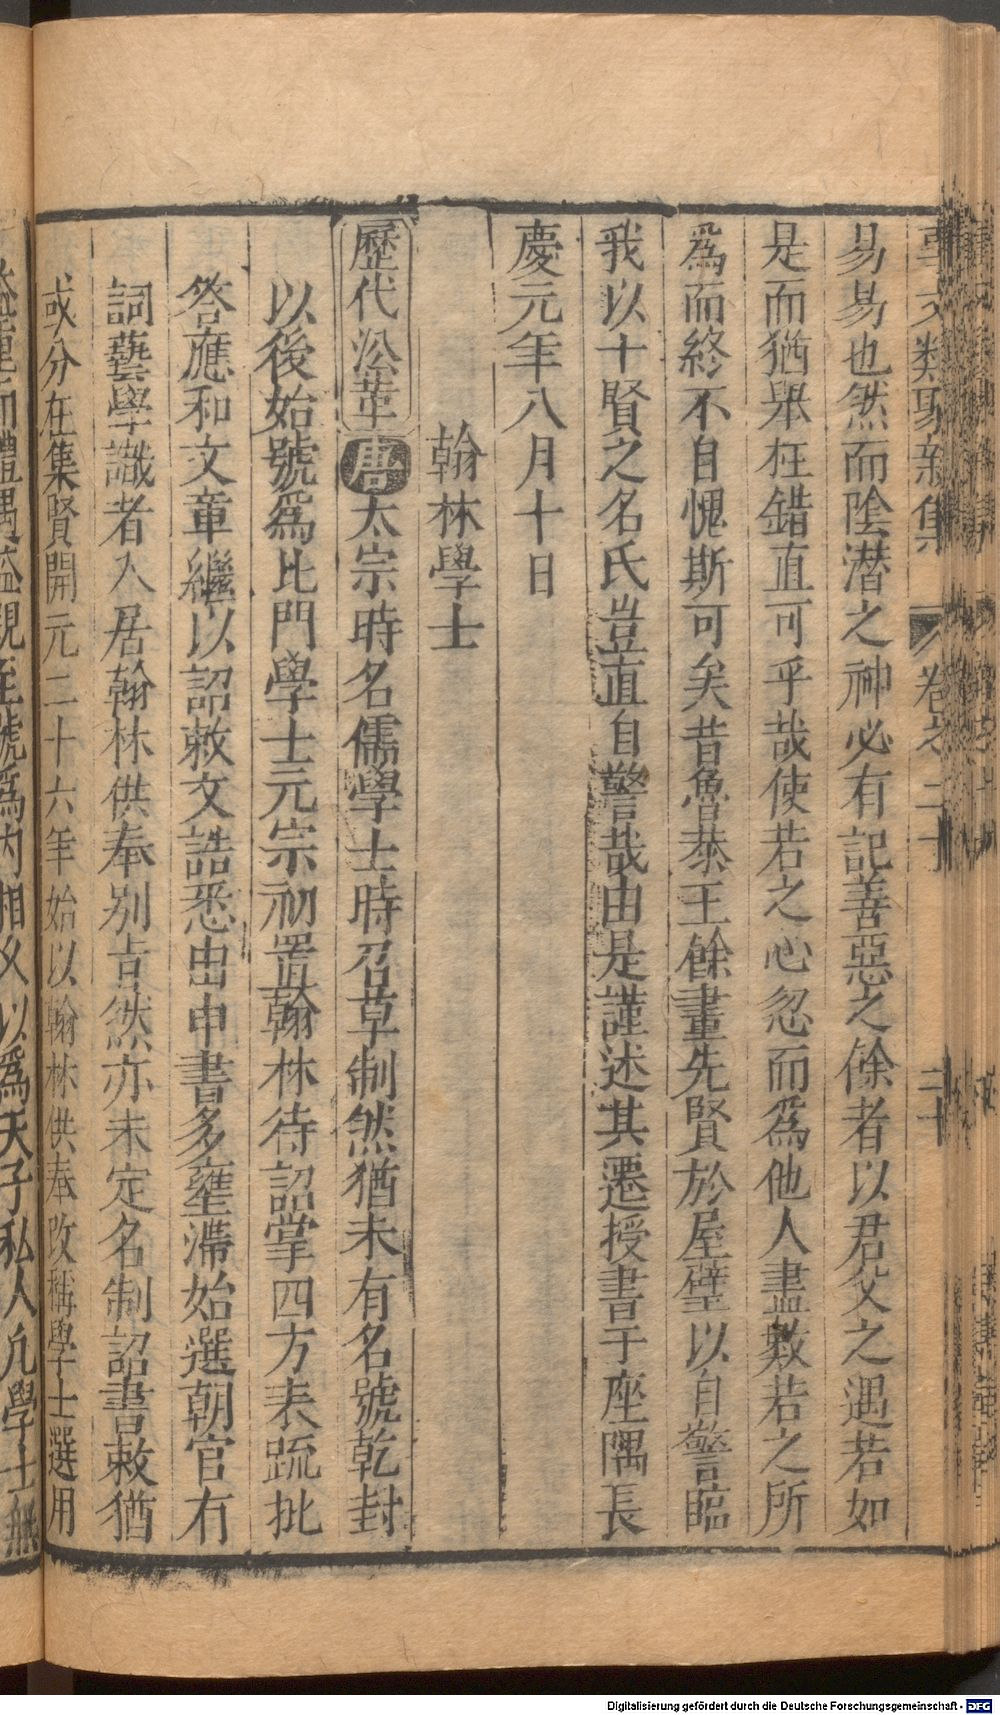 事文類聚新集 卷之二十 二十
易易也然而陰潜之神必有記善惡之餘者以君父之遇若如
是而猶舉枉錯直可乎哉使若之心忽而爲他人盡數若之所
爲而終不自愧斯可矣昔魯恭王餘畫先賢於屋壁以自警臨
我以十賢之名氏豈直自警哉由是謹述其遷授書于座隅長
慶元年八月十日
翰林學士
歷代沿革 唐太宗時名儒學士時召草制然猶未有名號乾封
以後始號爲北門學士元宗初置翰林待詔掌四方表䟽批
答應和文章繼以詔敕文誥悉由中書多壅滯始選朝官有
詞藝學識者入居翰林供奉别旨然亦未定名制詔書敕猶
或分在集賢開元二十六年始以翰林供奉改稱學士選用
益重而禮遇益親至號爲内相又以爲天子私人凢學士無
Digitalisierung gefördert durch die Deutsche Forschungsgemeinschaft - DFG